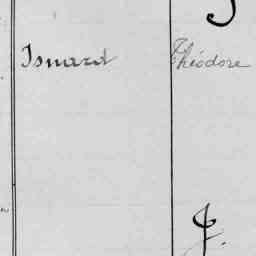 Isnard Théodore
J.